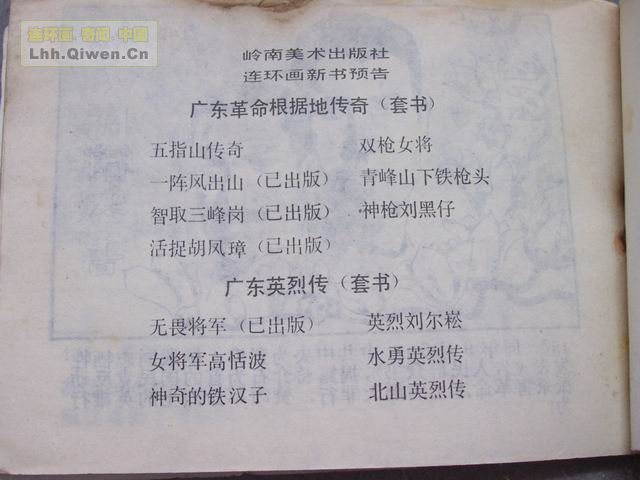 连环画·奇闻·中国
Lhh.Qiwen.Cn
岭南美术出版社
连环画新书预告
广东革命根据地传奇（套书）
五指山传奇 双枪女将
一阵风出山（已出版） 青峰山下铁枪头
智取三峰岗（已出版） 神枪刘黑仔
活捉胡凤璋（已出版）
广东英烈传（套书）
无畏将军（已出版） 英烈刘尔崧
女将军高恬波 水勇英烈传
神奇的铁汉子 北山英烈传